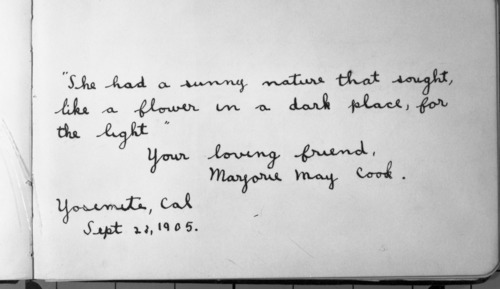 "She had a sunny nature that sought,
like a flower in a dark place, for
the light"
Your loving friend,
Marjorie May Cook.
Yosemite, Cal
Sept 22, 1905.